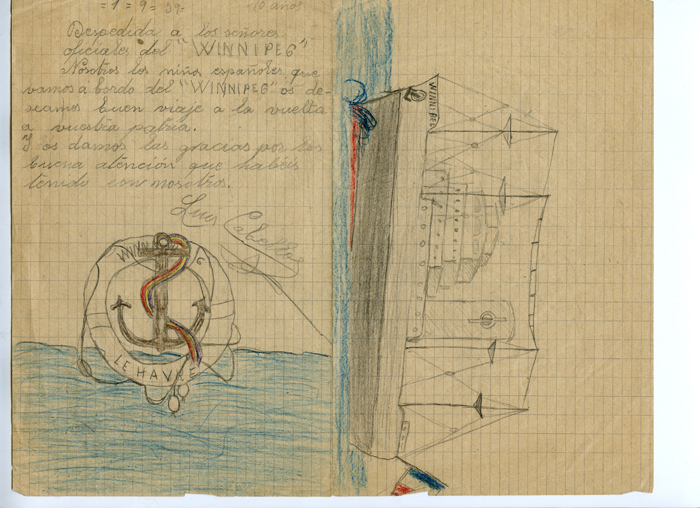 =1=9=39=
10 años
Despedida a los señores
oficiales del "WINNIPEG"
Nosotros los niños españoles que
vamos a bordo del "WINNIPEG" os de-
seamos buen viaje a la vuelta
a vuestra patria.
Y os damos las gracias por tan
buena atención que habéis
tenido con nosotros.
Luis
WINN G
LE HAVRE
WINNIPEG